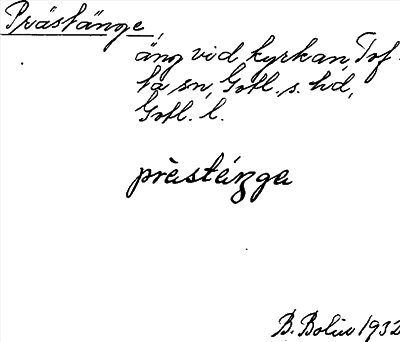 Prästänge,
äng vid kyrkan, Tof-
ta sn, Gotl. s. hd,
Gotl. l.
prèstánga
B. Bolin 1932